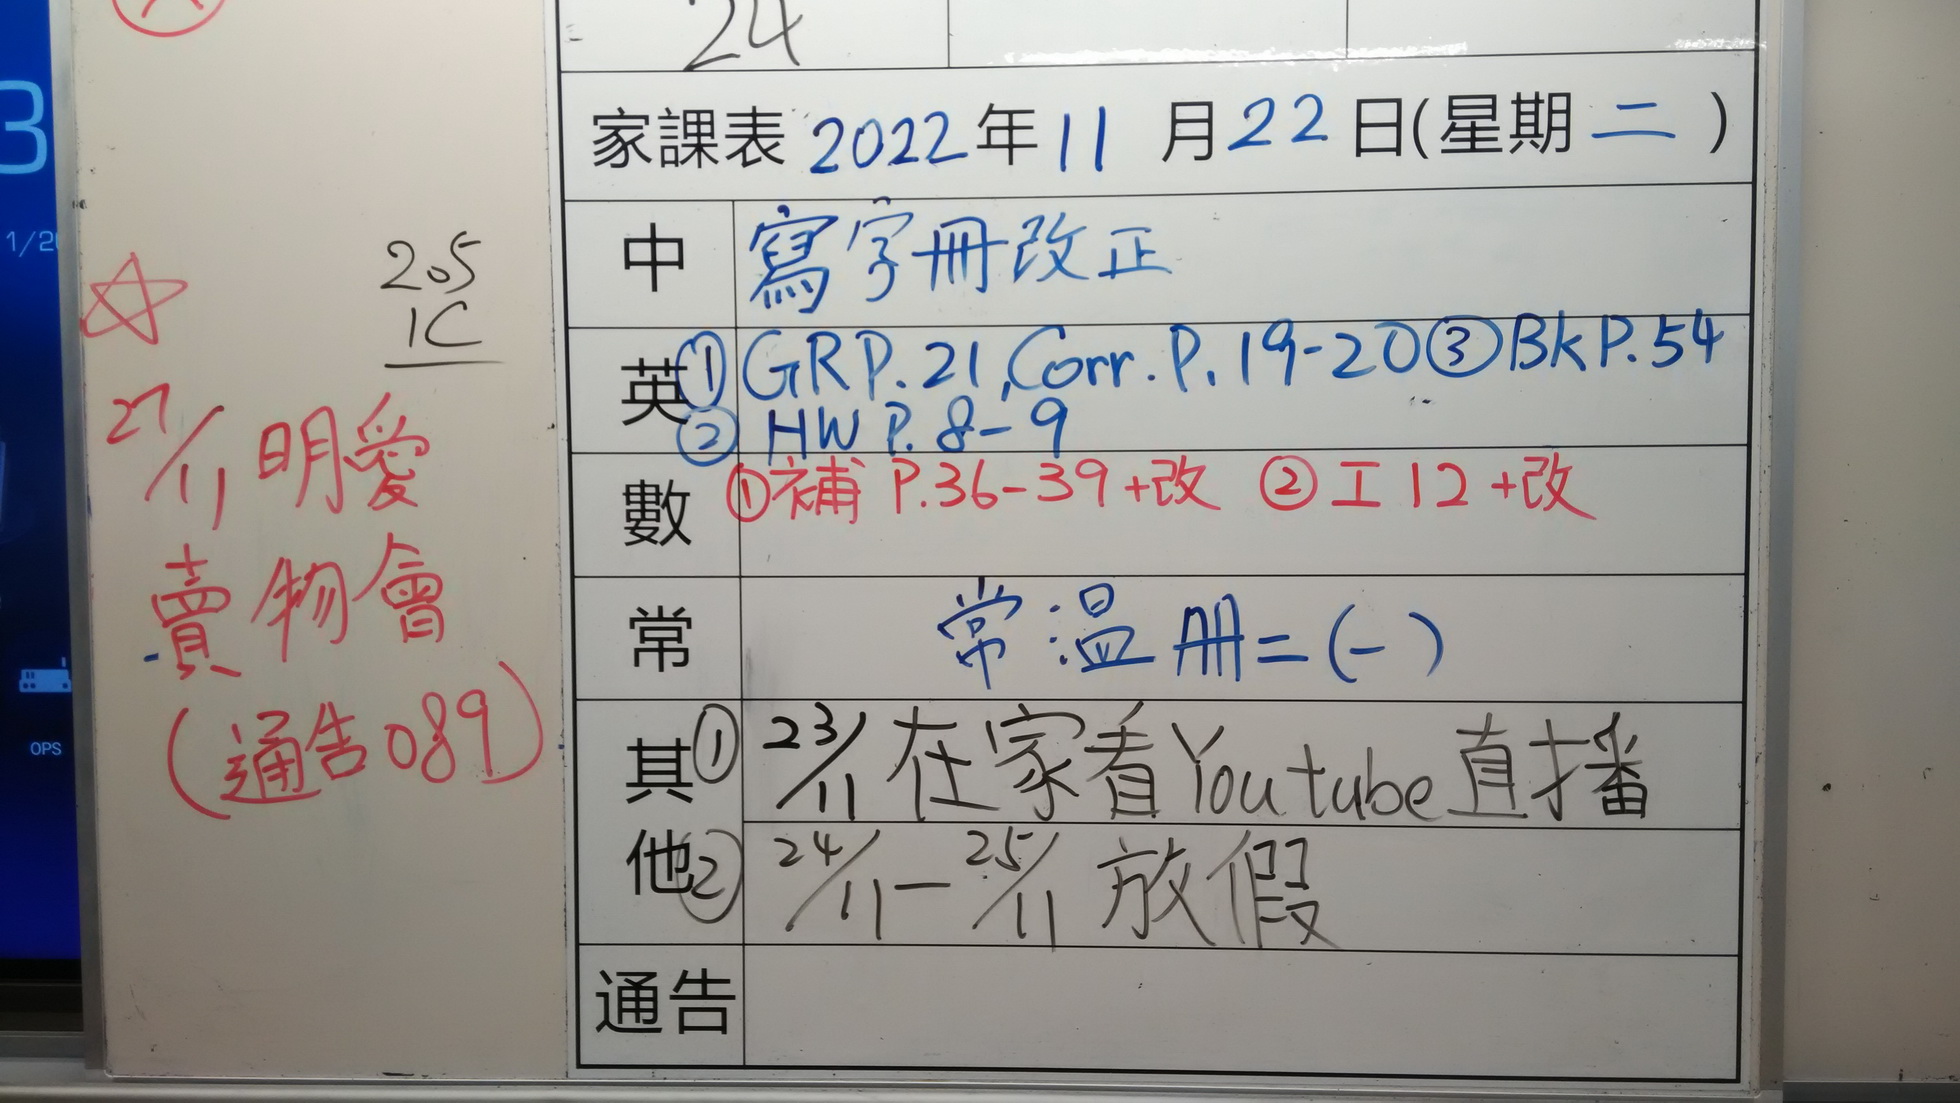 24
家課表 2022年11月22日(星期二)
中 寫字冊改正
英 ①GR P.21, Corr. P.19-20 ③Bk P.54
② HW P.8-9
數 ①補 P.36-39+改 ②工12+改
常 常溫冊=(一)
其他 ① 23/11 在家看Youtube直播
② 24/11-25/11 放假
通告
205
1C
27/11 明愛
賣物會
(通告089)
3
1/20
OPS